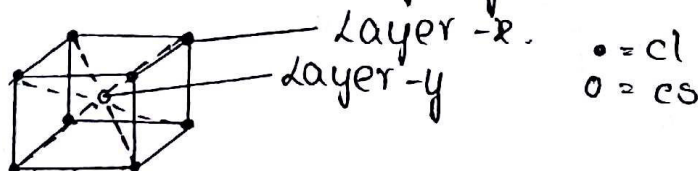 Layer-x.
Layer-y
• = cl
o = cs